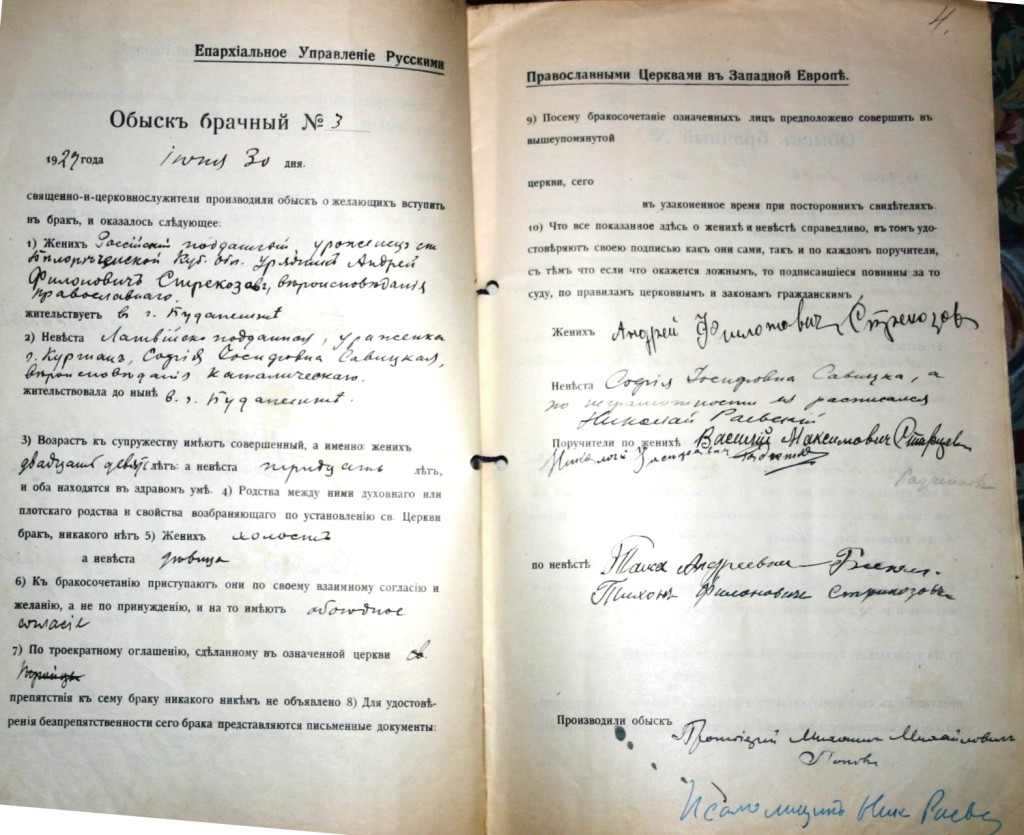 Епархіальное Управленіе Русскими
Обыскъ брачный № 3
1929 года іюня 30 дня.
священно-и-церковнослужители производили обыскъ о желающихъ вступить
въ бракъ, и оказалось слѣдующее:
1) Женихъ Россійскій подданный, уроженецъ ст.
Бѣлорѣченской Куб. обл. Урядникъ Андрей
Филоновичъ Стрекозовъ, вѣроисповѣданія
православнаго.
жительствуетъ въ г. Будапештѣ
2) Невѣста Латвійско-подданная, уроженка
г. Софія Іосифовна Савицкая,
вѣроисповѣданія католическаго.
жительствовала до нынѣ в. г. Будапештѣ.
3) Возрастъ къ супружеству имѣютъ совершенный, а именно: женихъ
двадцать девять лѣтъ: а невѣста тридцать лѣтъ,
и оба находятся въ здравомъ умѣ. 4) Родства между ними духовнаго или
плотскаго родства и свойства возбраняющаго по установленію св. Церкви
бракъ, никакого нѣтъ 5) Женихъ холостъ
а невѣста дѣвица
6) Къ бракосочетанію приступаютъ они по своему взаимному согласію и
желанію, а не по принужденію, и на то имѣютъ обоюдное
согласіе
7) По троекратному оглашенію, сдѣланному въ означенной церкви св
Троицы
препятствія къ сему браку никакого никѣмъ не объявлено 8) Для удостовѣ-
ренія безпрепятственности сего брака представляются письменные документы:
4.
Православными Церквами въ Западной Европѣ.
9) Посему бракосочетаніе означенныхъ лицъ предположено совершить въ
вышеупомянутой
церкви, сего
въ узаконенное время при постороннихъ свидѣтеляхъ.
10) Что все показанное здѣсь о женихѣ и невѣстѣ справедливо, въ томъ удо-
стовѣряютъ своею подписью какъ они сами, такъ и по каждомъ поручители,
съ тѣмъ что если что окажется ложнымъ, то подписавшіеся повинны за то
суду, по правиламъ церковнымъ и законамъ гражданскимъ
Женихъ Андрей Филоповичъ Стрекозов
Невѣста Софія Іосифовна Савицка, а
по неграмотности ея расписался
Николай Раевскій
Поручители по женихѣ Василій Максимович Старцев
Николай
по невѣстѣ Таиса Андреевна
Тихонъ Филоновичъ Стрикозовъ
Производили обыскъ
Протоіерей Михаилъ Михайловичъ
Поповъ
Псаломщикъ Ник Раевс